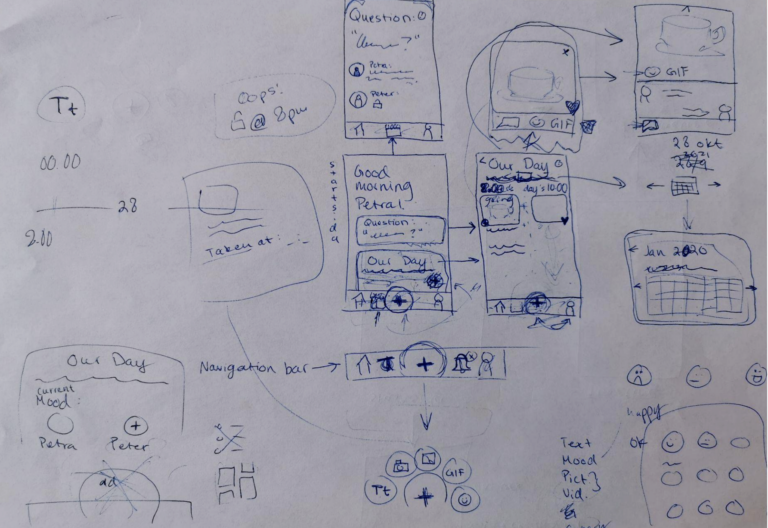 Question:
"?"
Petra:
Peter:
Oops!
@ 8pm
GIF
GIF
Tt
00.00
28
2.00
Taken at: _:_
starts:da
Good
morning
Petra!
Question:
"?"
Our Day
+
< Our Day
day's 10:00
+
28 okt
2021
Jan 2020
Our Day
Current
Mood:
Petra
Peter
+
ad
Navigation bar →
+
GIF
Tt
+
happy
OK
Text
Mood
Pict
Vid.